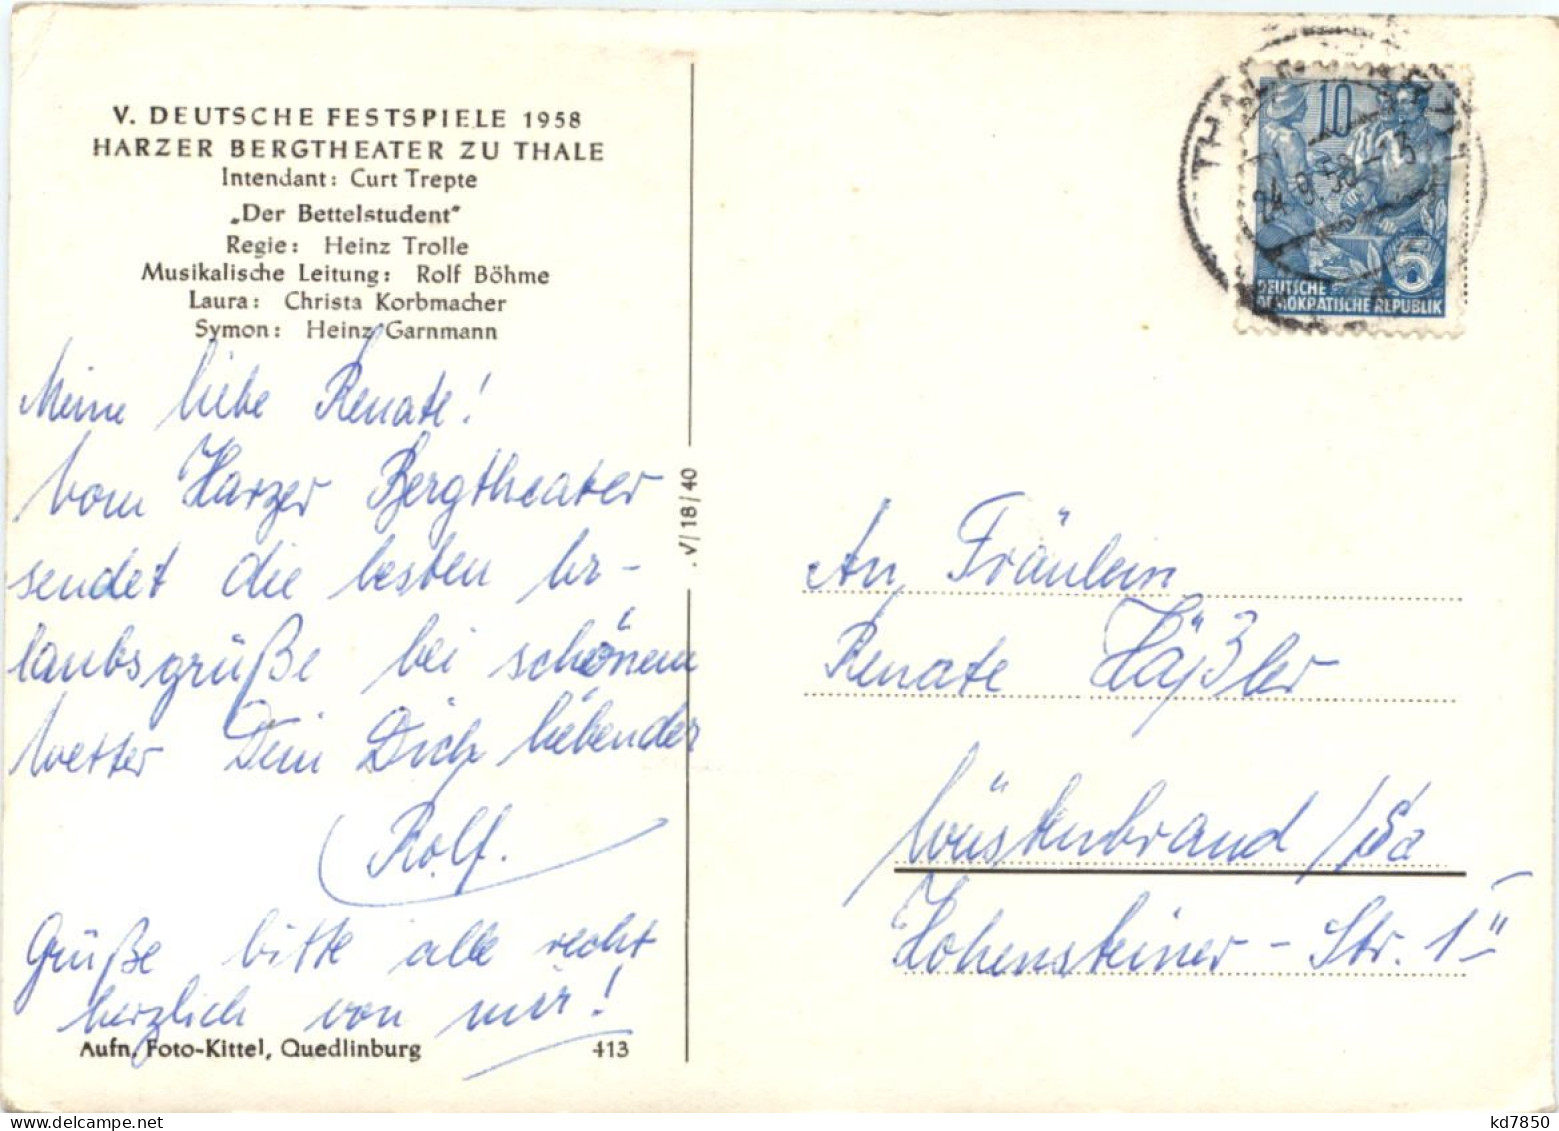 V. DEUTSCHE FESTSPIELE 1958
HARZER BERGTHEATER ZU THALE
Intendant: Curt Trepte
„Der Bettelstudent"
Regie: Heinz Trolle
Musikalische Leitung: Rolf Böhme
Laura: Christa Korbmacher
Symon: Heinz Garnmann
Meine liebe Renate!
Vom Harzer Bergtheater
sendet die besten Ur-
laubsgrüße bei schönem
Wetter Dein Dich liebender
Rolf.
Grüße bitte alle recht
herzlich von mir!
Aufn. Foto-Kittel, Quedlinburg 413
V/18/40
THALE
24.9.58-13
10
5
DEUTSCHE
DEMOKRATISCHE REPUBLIK
An Fräulein
Renate Häßler
Wüstenbrand /Sa
Hohensteiner-Str. 1
kd7850